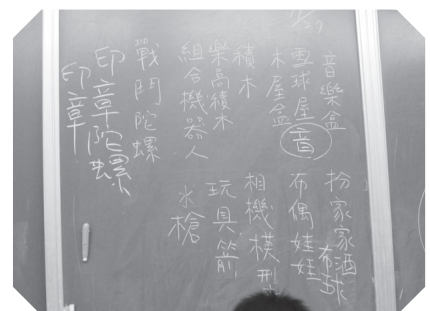 音樂盒
雪球屋 音
木屋盒
積木
樂高積木
組合機器人
戰鬥陀螺
印章陀螺
印章
扮家家酒
布球
布偶娃娃
相機模型
玩具箭
水槍